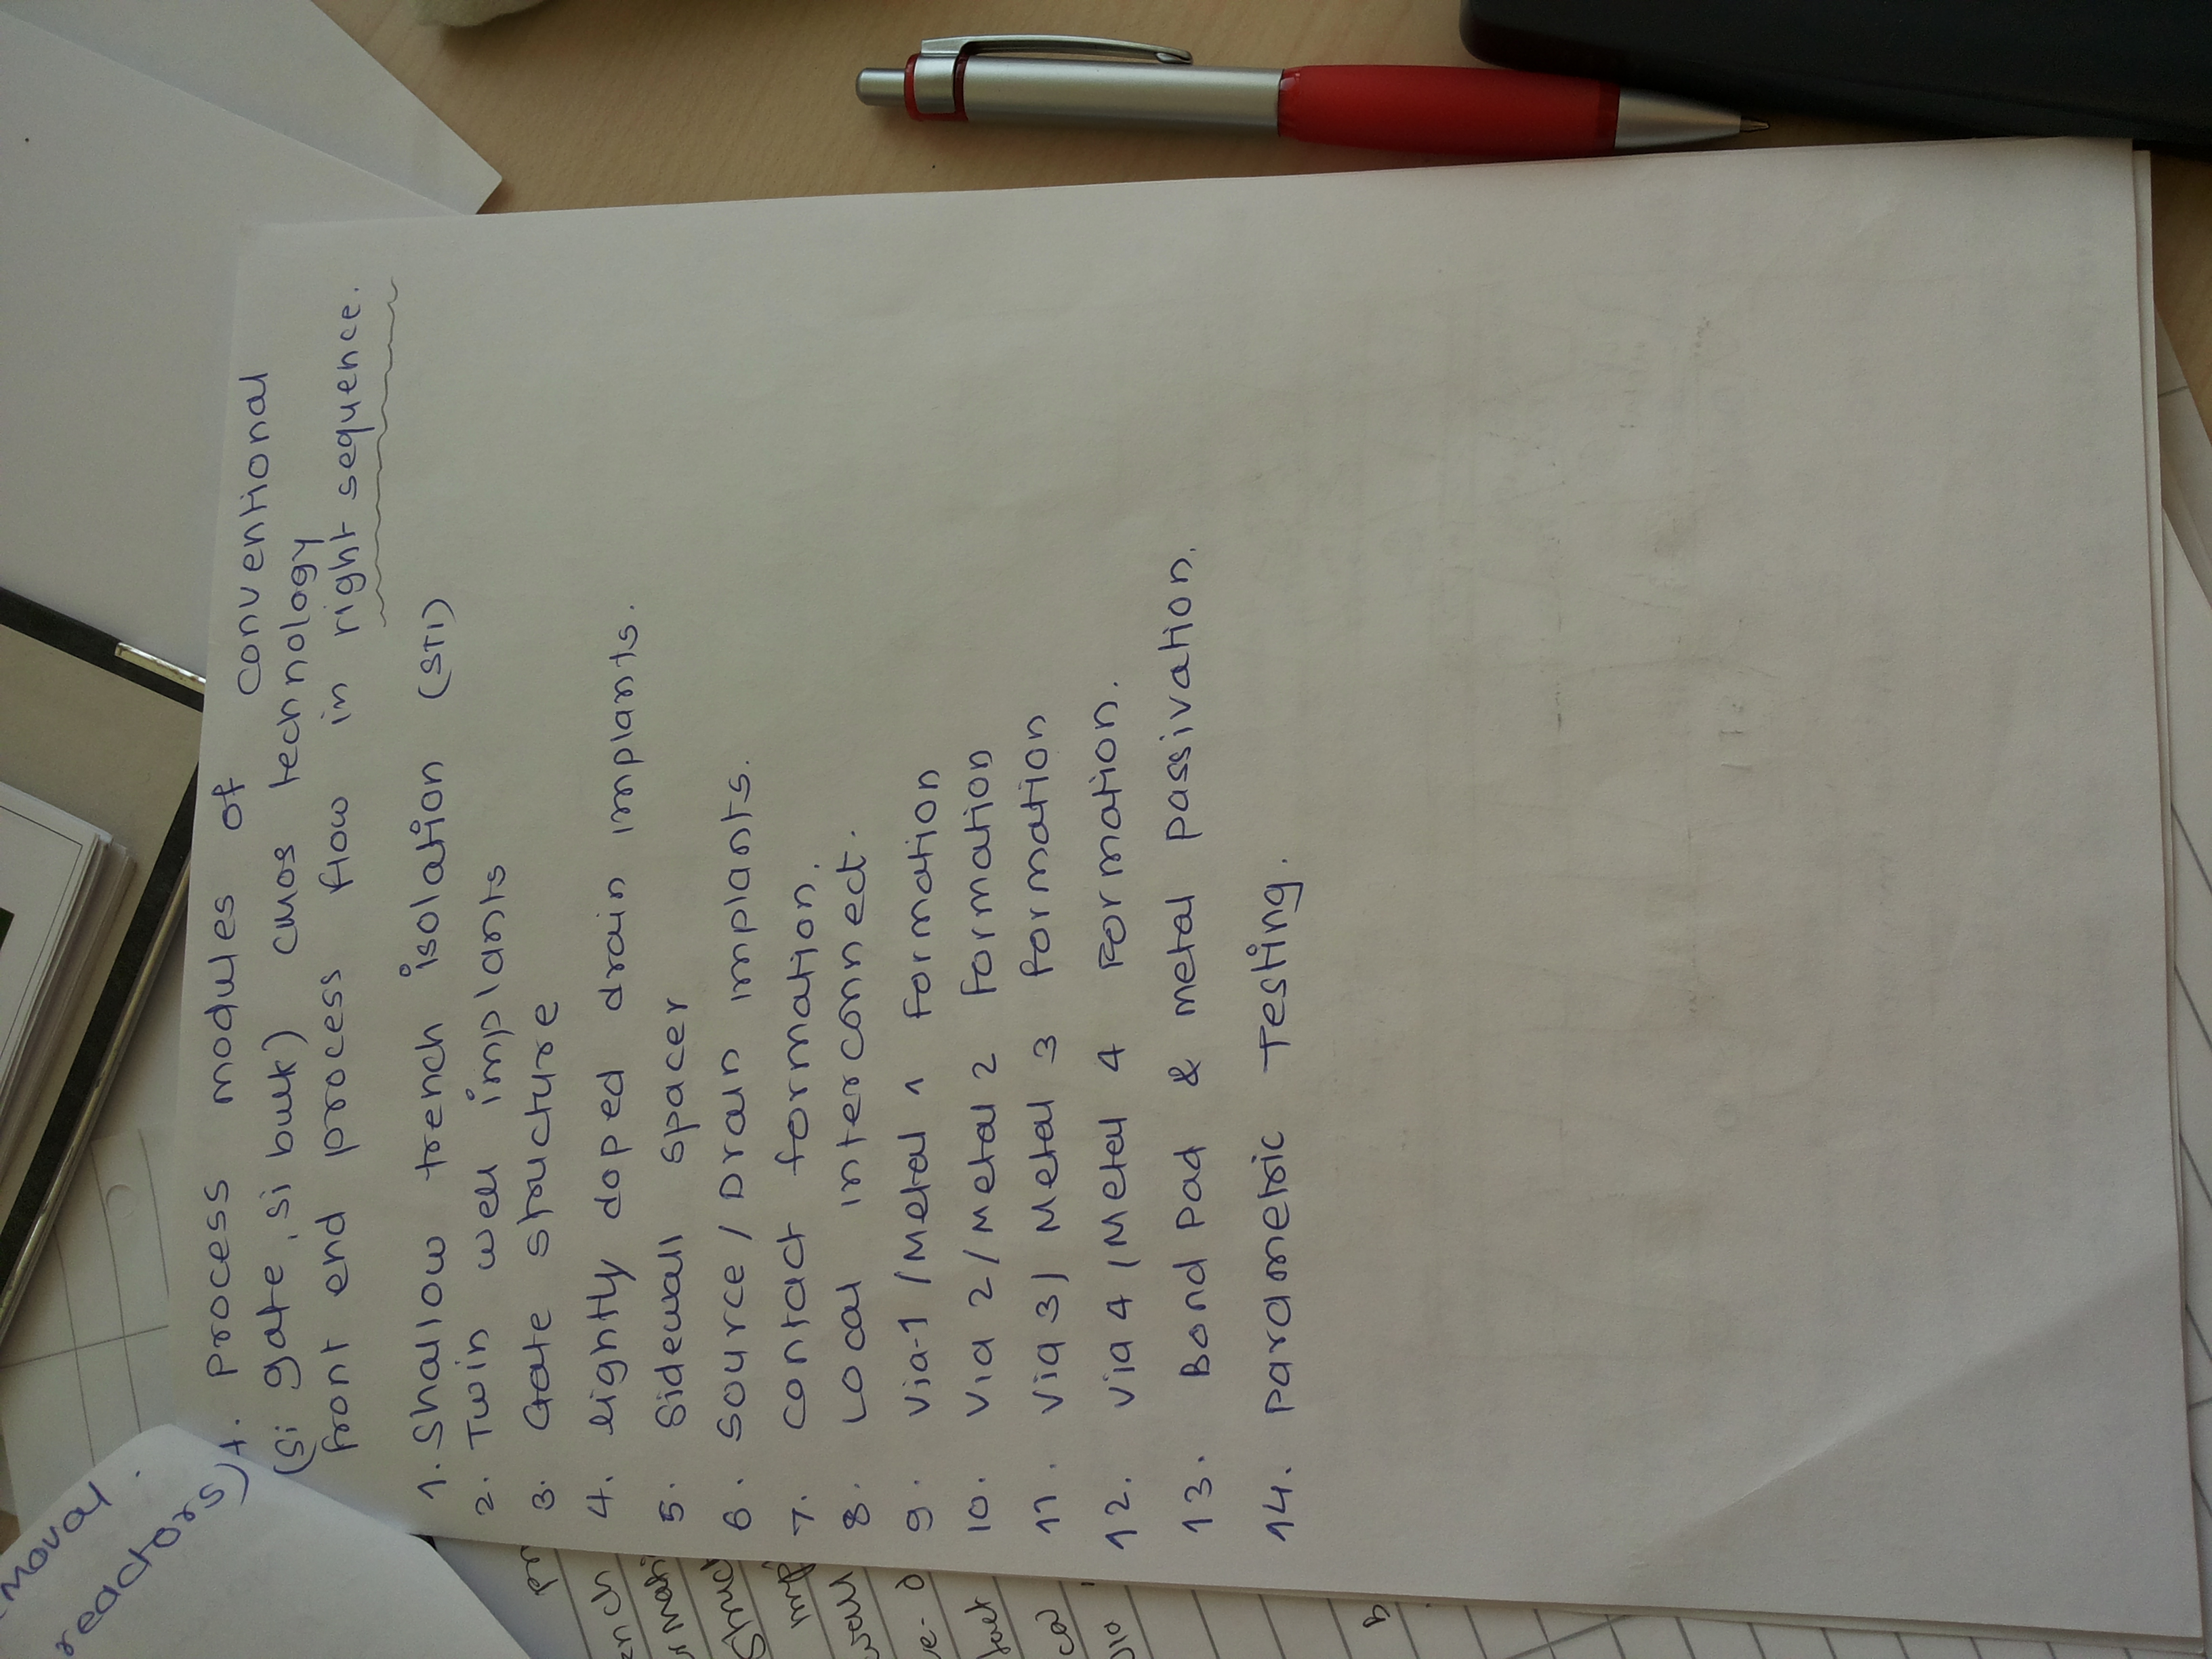 moval.
reactors)
1. Process modules of conventional
(Si gate, si bulk) CMOS technology
front end process flow in right sequence.
1. Shallow trench isolation (STI)
2. Twin well implants
3. Gate structure
4. lightly doped drain implants.
5. Sidewall spacer
6. Source / Drain implants.
7. contact formation.
8. Local interconnect.
9. Via-1 /Metal 1 Formation
10. Via 2/Metal 2 Formation
11. Via 3/ Metal 3 formation
12. Via 4 /Metal 4 Formation.
13. Bond Pad & metal passivation.
14. Parametric Testing.
ench
Struct
wall
B